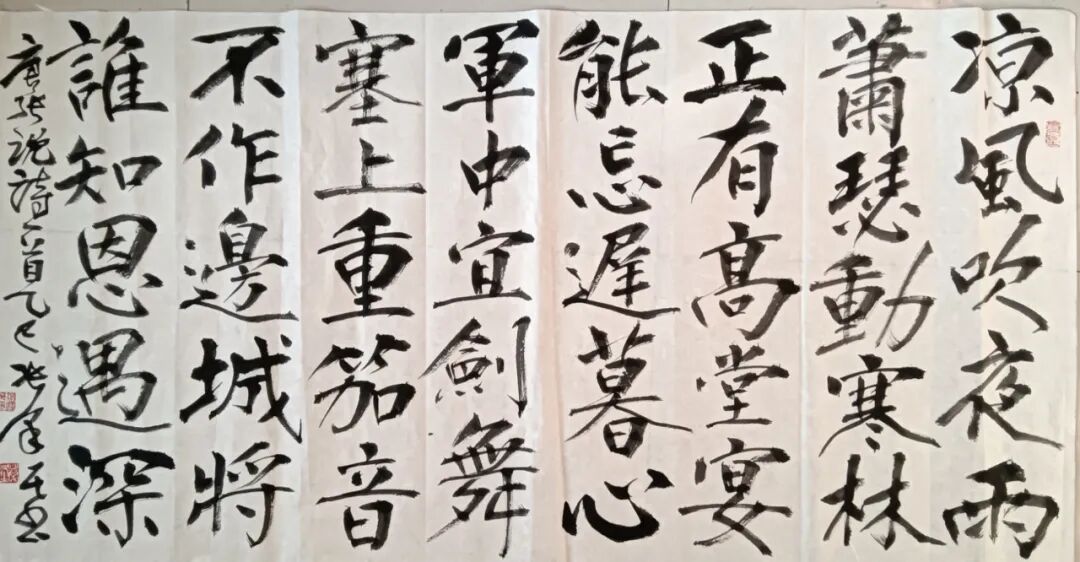 凉風吹夜雨
蕭瑟動寒林
正有高堂宴
能忘遲暮心
軍中宜劍舞
塞上重笳音
不作邊城將
誰知恩遇深
唐張説詩一首乙巳張